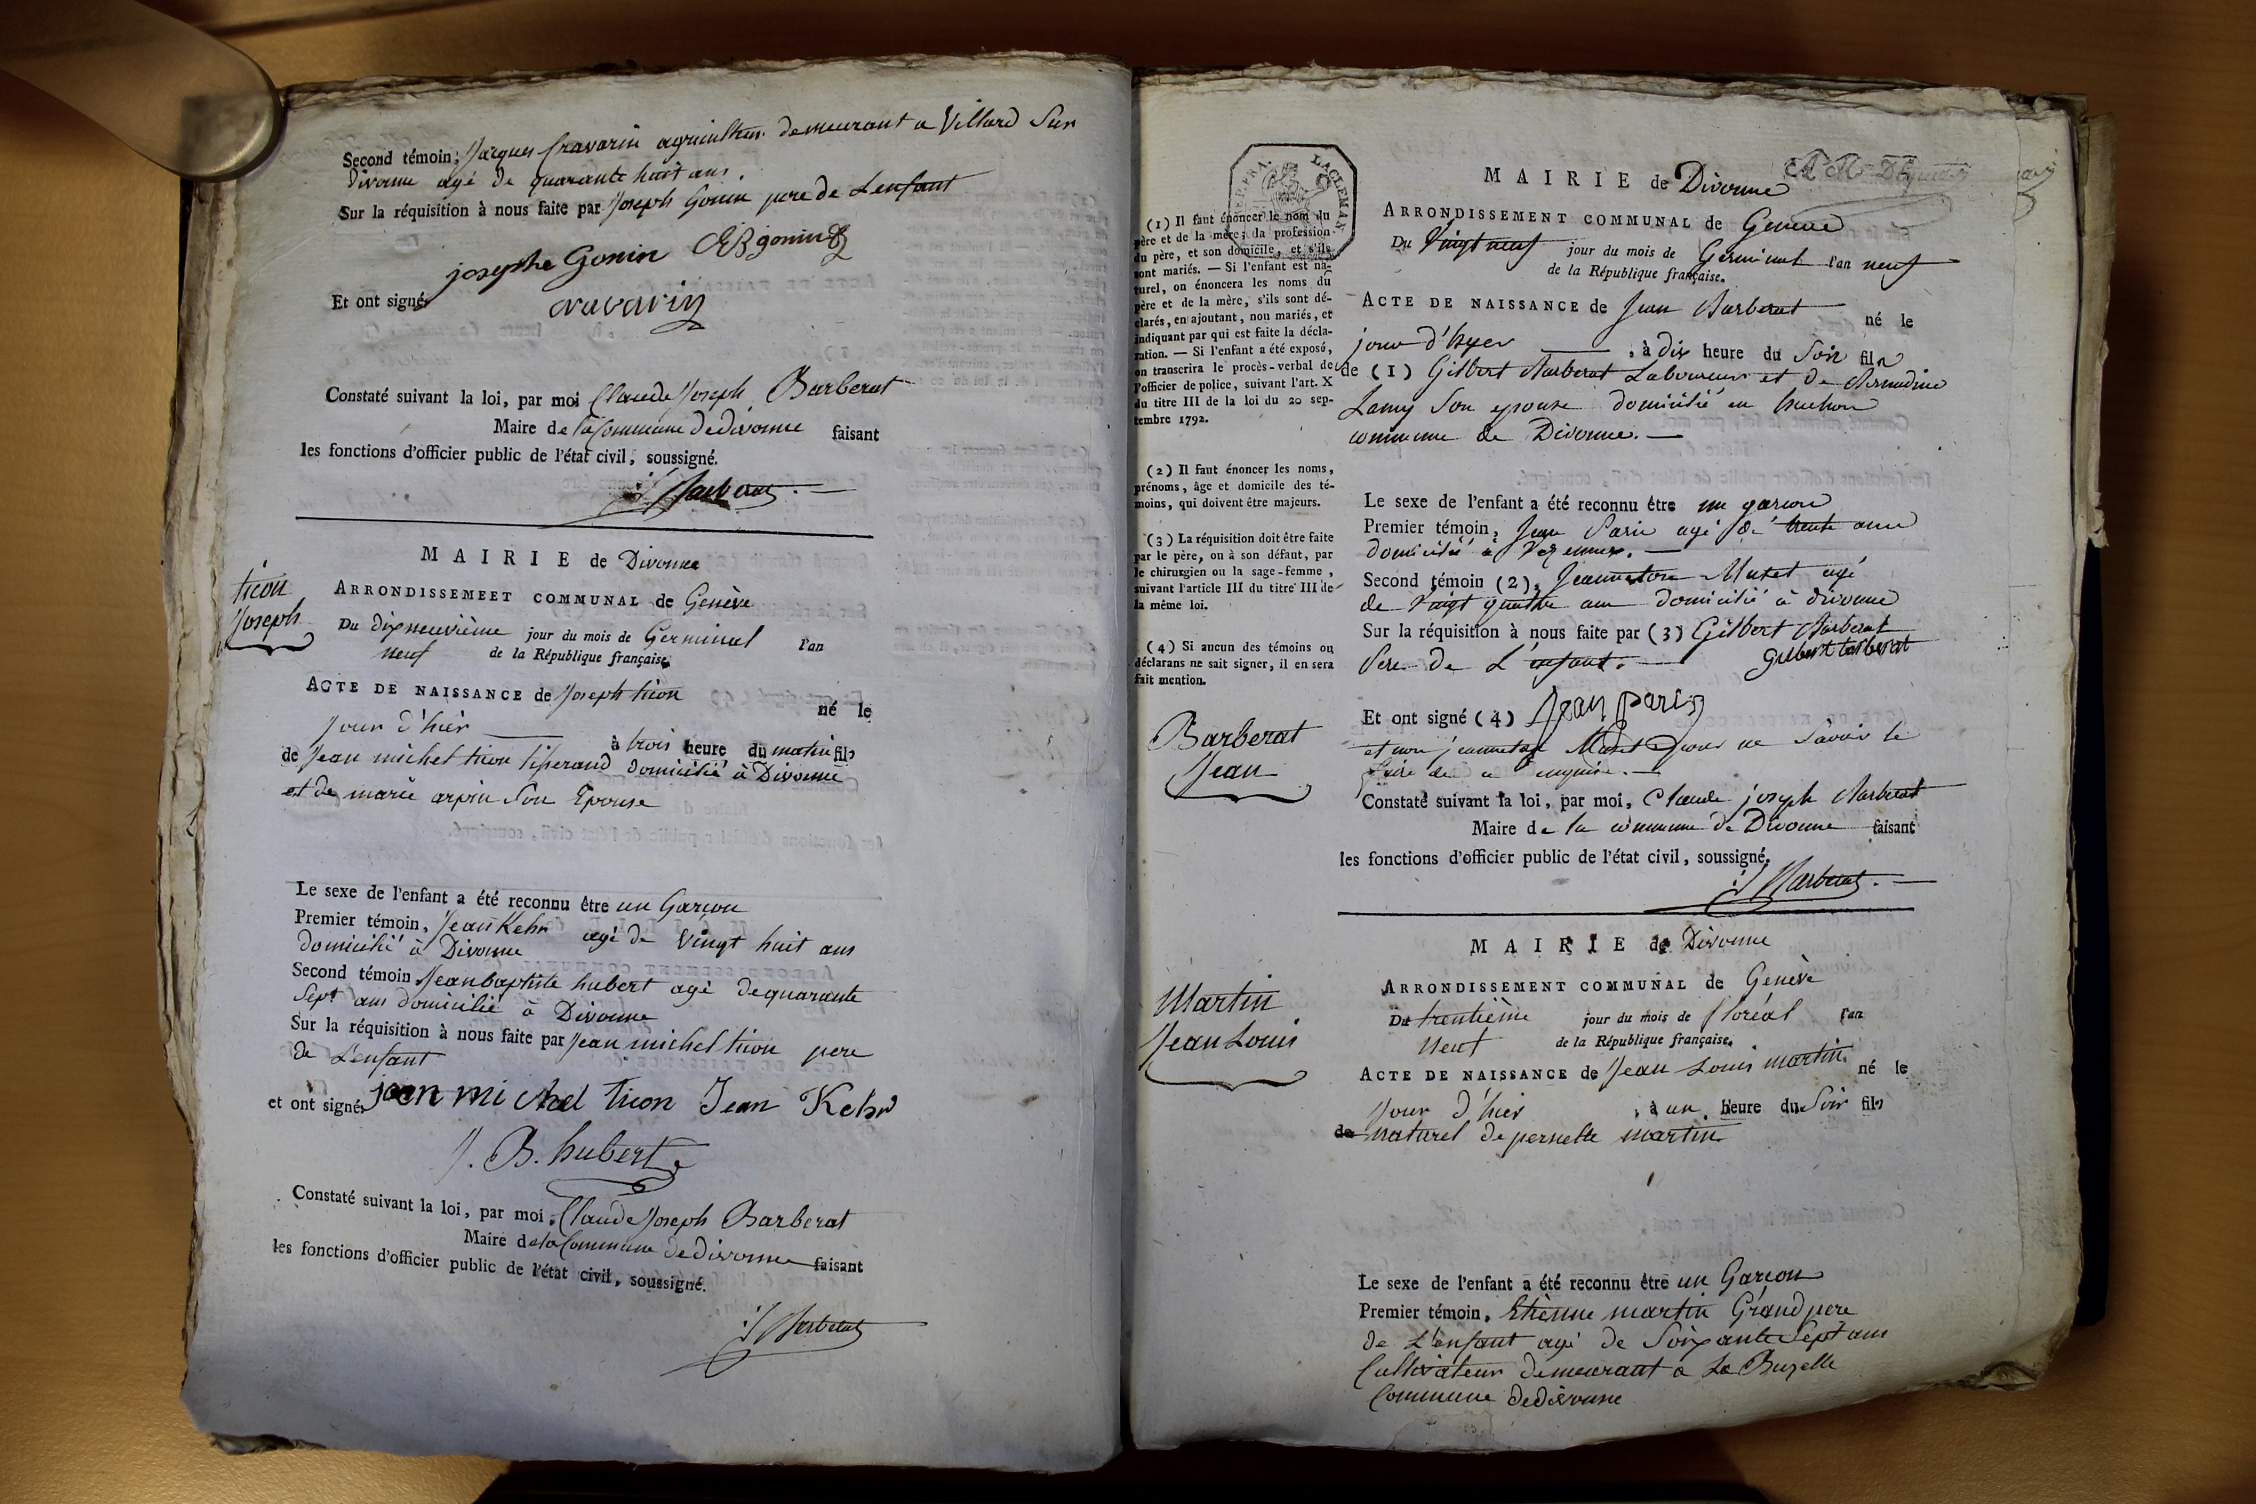 Second témoin, Jacques Cravarin agriculteur demeurant a Villard Sur
divonne agé de quarante huit ans.
Sur la réquisition à nous faite par Joseph Gonin pere de L'enfant
josephe Gonin gonin
Et ont signé
cravarin
Constaté suivant la loi, par moi Claude Joseph Barberat
Maire de la Commune de divonne faisant
les fonctions d'officier public de l'état civil, soussigné.
Barberat
MAIRIE de Divonne
ticon
Joseph
ARRONDISSEMEET COMMUNAL de Genève
Du dixneuvième jour du mois de Germinal l'an
neuf de la République française.
ACTE DE NAISSANCE de Joseph ticon né le
Jour d'hièr à trois heure du matin fils
de Jean michel ticon domicilié à Divonne
et de marie arpin Son Epouse
Le sexe de l'enfant a été reconnu être un Garçon
Premier témoin, Jean Kehr agé de Vingt huit ans
domicilié à Divonne
Second témoin Jean baptiste hubert agé de quarante
Sept ans domicilié à Divonne
Sur la réquisition à nous faite par Jean michel ticon pere
de L'enfant
et ont signé jean michel ticon Jean Kehr
J. B. hubert
Constaté suivant la loi, par moi, Claude Joseph Barberat
Maire de la Commune de divonne faisant
les fonctions d'officier public de l'état civil, soussigné.
Barberat
MAIRIE de Divonne
ARRONDISSEMENT COMMUNAL de Geneve
Du Vingt neuf jour du mois de Germinal l'an neuf
de la République française.
ACTE DE NAISSANCE de Jean Barberat né le
jour d'hyer, à dix heure du Soir fils
de (1) Gilbert Barberat Laboureur et de
Lamy Son epouse domicilié en
commune de Divonne.
Le sexe de l'enfant a été reconnu être un garcon
Premier témoin, Jean Paris agé de trente ans
domicilié à Vezennex.
Second témoin (2), Jeanneton Muset agé
de Vingt quatre ans domicilié à divonne
Sur la réquisition à nous faite par (3) Gilbert Barberat
Pere de L'enfant. Gilbert barberat
Et ont signé (4) Jean paris
et non jeanneton Muset pour ne Savoir le
faire de ce enquise.
Constaté suivant la loi, par moi, Claude joseph Barberat
Maire de la commune de Divonne faisant
les fonctions d'officier public de l'état civil, soussigné.
Barberat
(1) Il faut énoncer le nom du
père et de la mère; la profession
du père, et son domicile, et s'ils
sont mariés. — Si l'enfant est na-
turel, on énoncera les noms du
père et de la mère, s'ils sont dé-
clarés, en ajoutant, non mariés, et
indiquant par qui est faite la décla-
ration. — Si l'enfant a été exposé,
on transcrira le procès-verbal de
l'officier de police, suivant l'art. X
du titre III de la loi du 20 sep-
tembre 1792.
(2) Il faut énoncer les noms,
prénoms, âge et domicile des té-
moins, qui doivent être majeurs.
(3) La réquisition doit être faite
par le père, ou à son défaut, par
le chirurgien ou la sage-femme,
suivant l'article III du titre III de
la même loi.
(4) Si aucun des témoins ou
déclarans ne sait signer, il en sera
fait mention.
Barberat
Jean
MAIRIE de Divonne
Martin
Jean Louis
ARRONDISSEMENT COMMUNAL de Genève
Du trentième jour du mois de floréal l'an
neuf de la République française.
ACTE DE NAISSANCE de Jean Louis martin né le
Jour d'hier, à un heure du Soir fils
de naturel de pernette martin
Le sexe de l'enfant a été reconnu être un Garcon
Premier témoin, Etienne martin Grand pere
de L'enfant agé de Soixante Sept ans
Cultivateur demeurant a La Buzelle
Commune de divonne